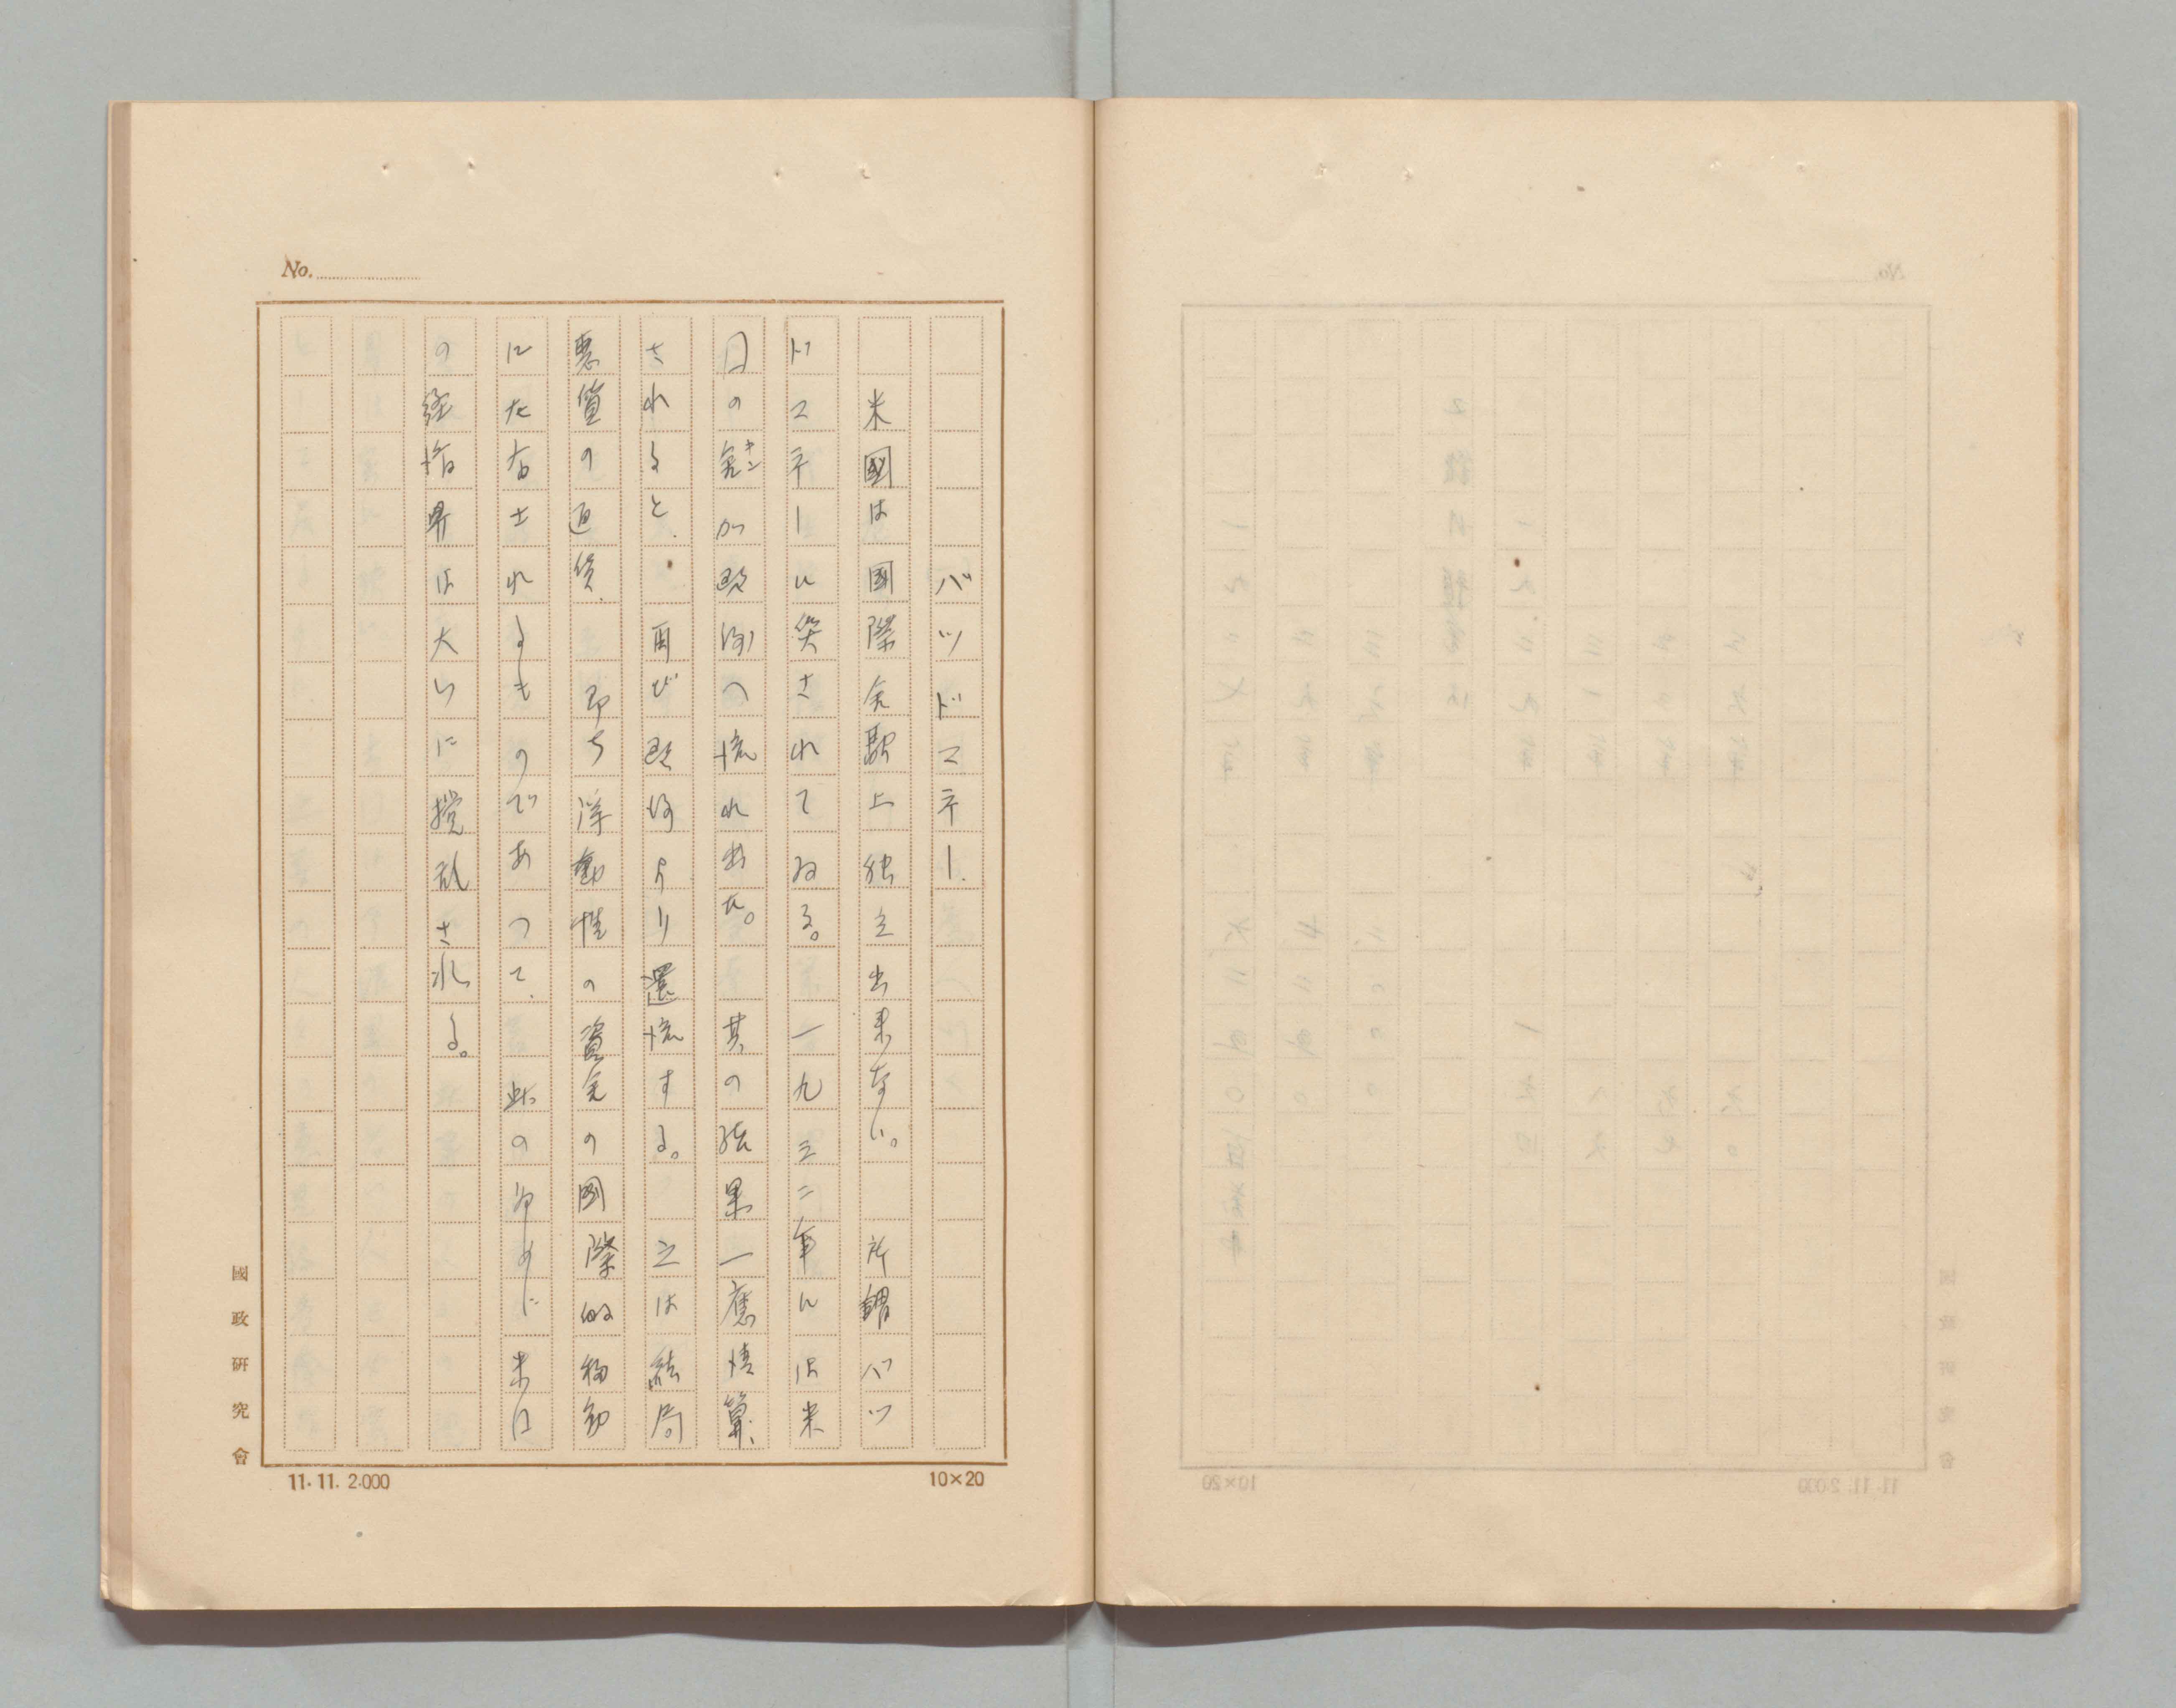 No.
バツドマネー.
米國は国際金融上独立出来ない。 所謂バツ
ドマネーに災されてゐる。 一九三二年には米
国の金キンが欧洲へ流れ出た。 其の結果一應清算、
されると、 再び欧洲より還流する。 之は結局
悪質の通貨. 即ち浮動性の資金の国際的移動
に左右されるものであつて、 此の為めに米国
の経済界は大いに撹乱される。
國政研究會
11.11. 2.000
10×20